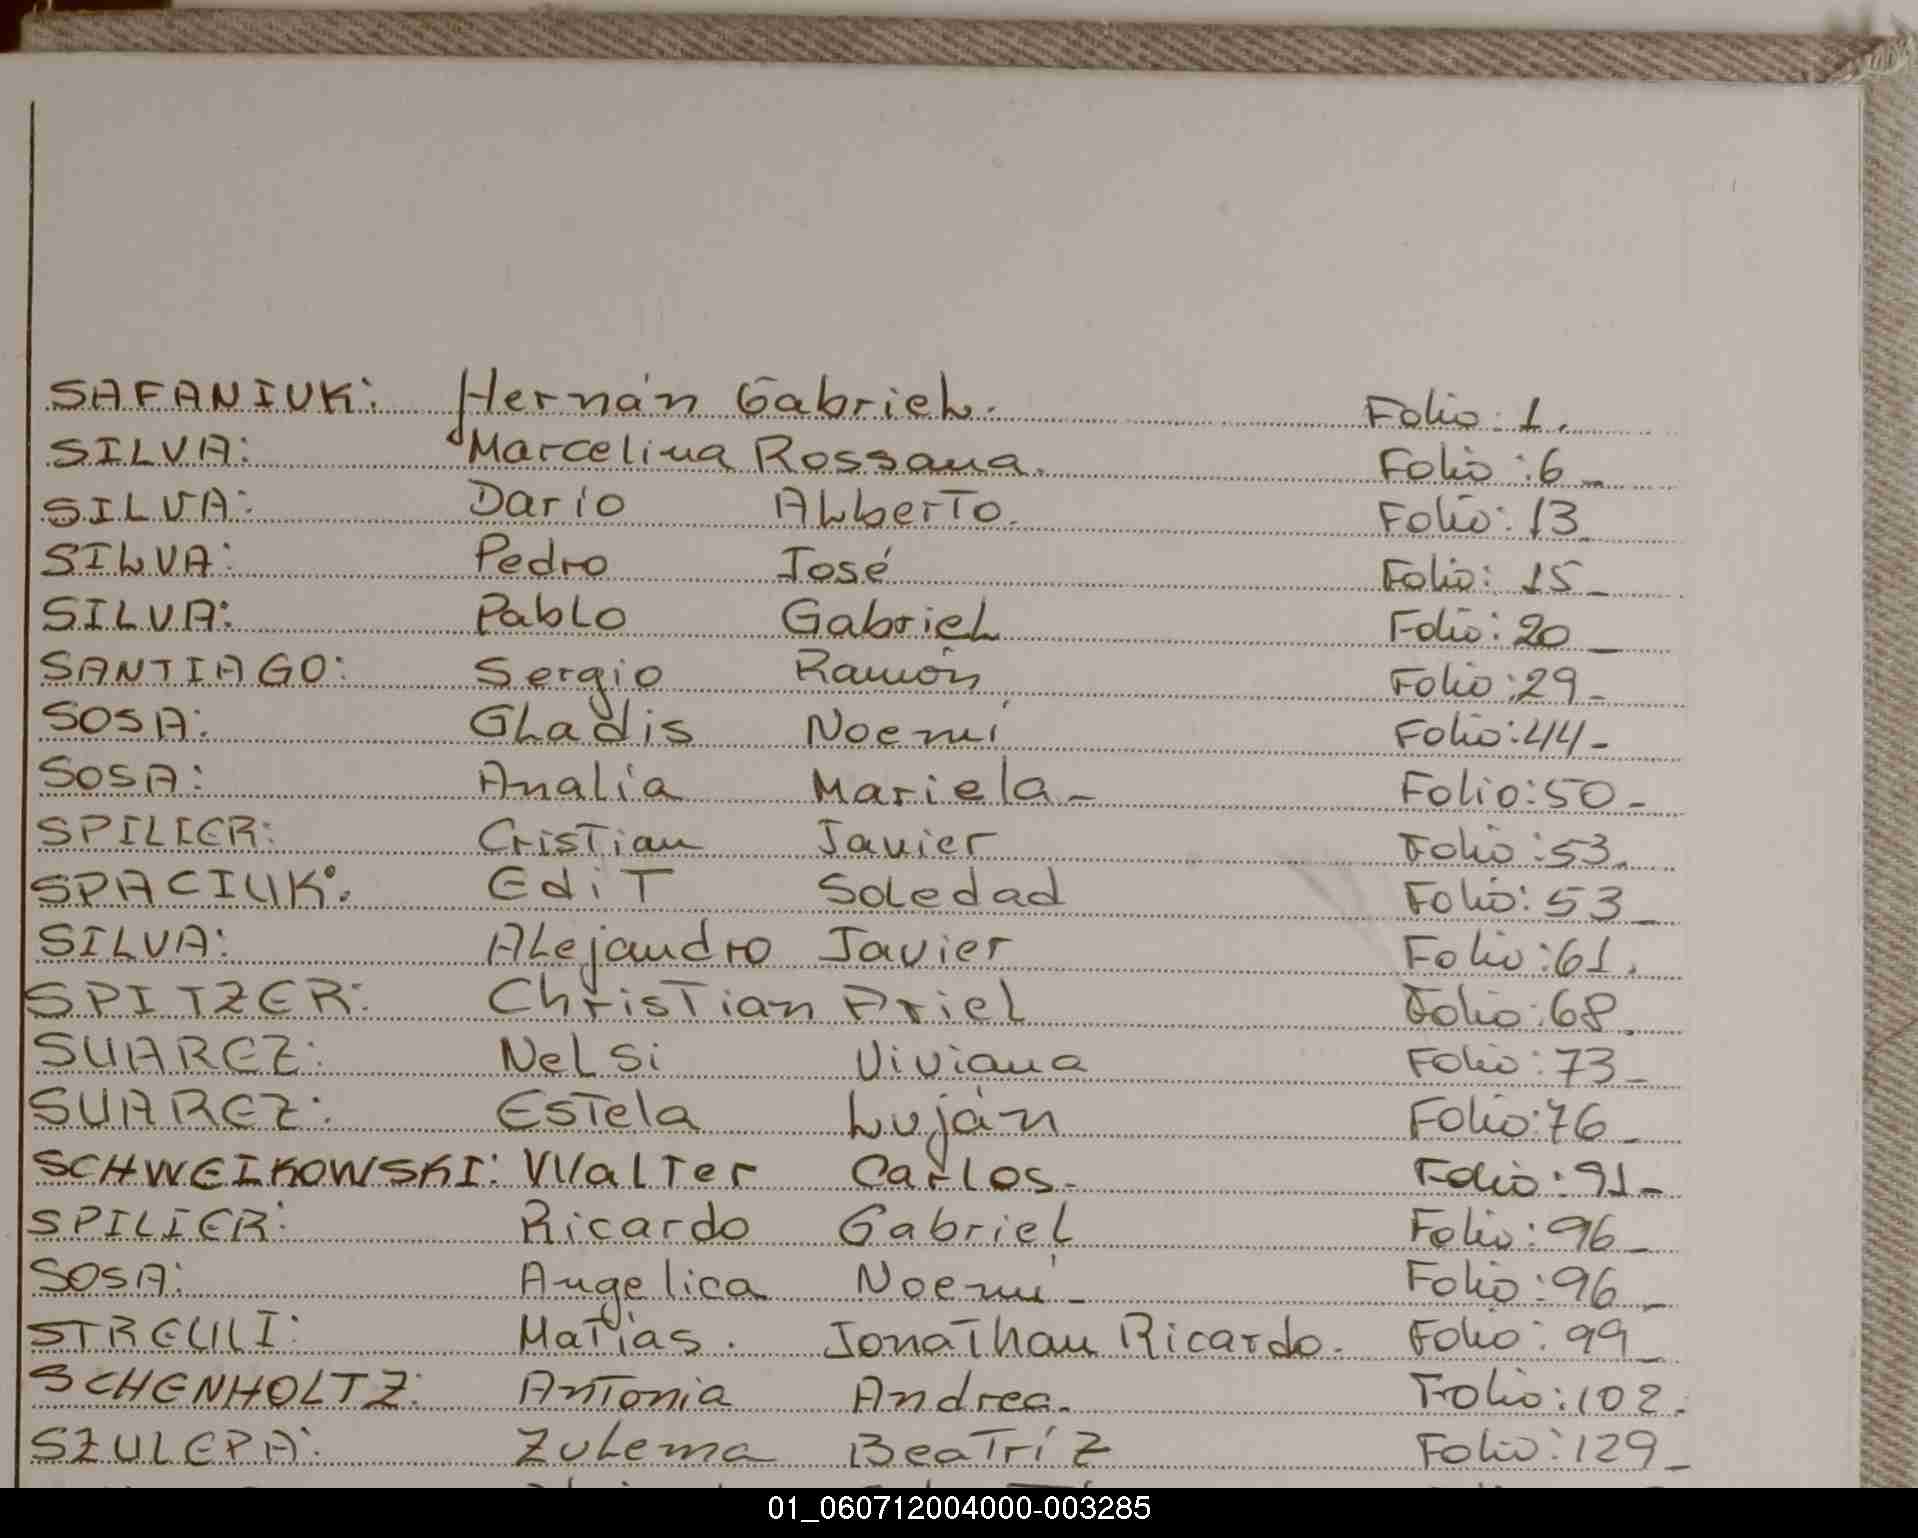 SAFANIUK: Hernán Gabriel. Folio: 1.
SILVA: Marcelina Rossana. Folio: 6_
SILVA: Darío Alberto. Folio: 13_
SILVA: Pedro José Folio: 15_
SILVA: Pablo Gabriel Folio: 20_
SANTIAGO: Sergio Ramón Folio: 29_
SOSA: Gladis Noemí Folio: 44_
SOSA: Analía Mariela_ Folio: 50_
SPILIER: Cristian Javier Folio: 53.
SPACIUK: Edit Soledad Folio: 53_
SILVA: Alejandro Javier Folio: 61.
SPITZER: Christian Ariel Folio: 68.
SUAREZ: Nelsi Viviana Folio: 73_
SUAREZ: Estela Luján Folio: 76_
SCHWEIKOWSKI: Walter Carlos. Folio: 91_
SPILIER: Ricardo Gabriel Folio: 96_
SOSA: Angelica Noemí_ Folio: 96_
STREULI: Matías. Jonathan Ricardo. Folio: 99_
SCHENHOLTZ: Antonia Andrea. Folio: 102.
SZULEPA: Zulema Beatríz Folio: 129_
01_060712004000-003285